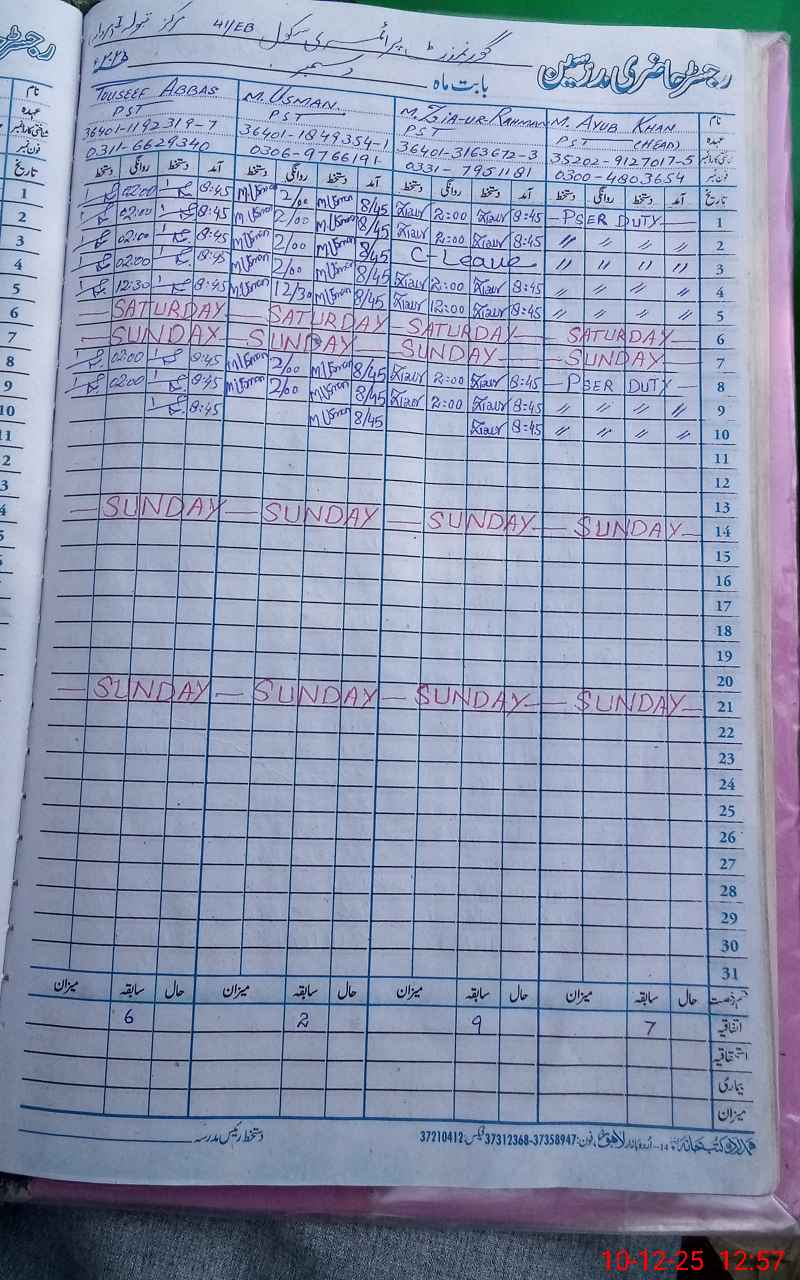 رجسٹر حاضری مدرسین
گورنمنٹ پرائمری سکول 41/EB مرکز
بابت ماہ دسمبر
نام M. AYUB KHAN M. ZIA-UR-RAHMAN M. USMAN TOUSEEF ABBAS
عہدہ PST (HEAD) PST PST PST
35202-9127017-5 36401-3163672-3 36401-1849354-1 36401-1192319-7
فون نمبر 0300-4803654 0331-7951181 0306-9766191 0311-6629340
تاریخ آمد دستخط روانگی دستخط آمد دستخط روانگی دستخط آمد دستخط روانگی دستخط آمد دستخط روانگی دستخط
1 — PSER DUTY — 8:45 2:00 8/45 M Usman 2/00 M Usman 8:45 02:00
2 〃 〃 〃 〃 8:45 2:00 8/45 M Usman 2/00 M Usman 8:45 02:00
3 〃 〃 〃 〃 C-Leave 8/45 M Usman 2/00 M Usman 8:45 02:00
4 〃 〃 〃 〃 8:45 2:00 8/45 M Usman 2/00 M Usman 8:45 02:00
5 〃 〃 〃 〃 8:45 12:00 8/45 M Usman 12/30 M Usman 8:45 12:30
6 — SATURDAY — SATURDAY — SATURDAY — SATURDAY —
7 — SUNDAY — SUNDAY — SUNDAY — SUNDAY —
8 — PSER DUTY — 8:45 2:00 8/45 M Usman 2/00 M Usman 8:45 02:00
9 〃 〃 〃 〃 8:45 2:00 8/45 M Usman 2/00 M Usman 8:45 02:00
10 〃 〃 〃 〃 8:45 8/45 M Usman 8:45
11
12
13
14 — SUNDAY — SUNDAY — SUNDAY — SUNDAY —
15
16
17
18
19
20
21 — SUNDAY — SUNDAY — SUNDAY — SUNDAY —
22
23
24
25
26
27
28
29
30
31
قسم رخصت حال سابقہ میزان حال سابقہ میزان حال سابقہ میزان حال سابقہ میزان
اتفاقیہ 7 9 2 6
استحقاقیہ
بیماری
میزان
اردو بازار لاہور، فون: 37358947-37312368 فیکس: 37210412
دستخط رئیس مدرسہ
10-12-25 12:57